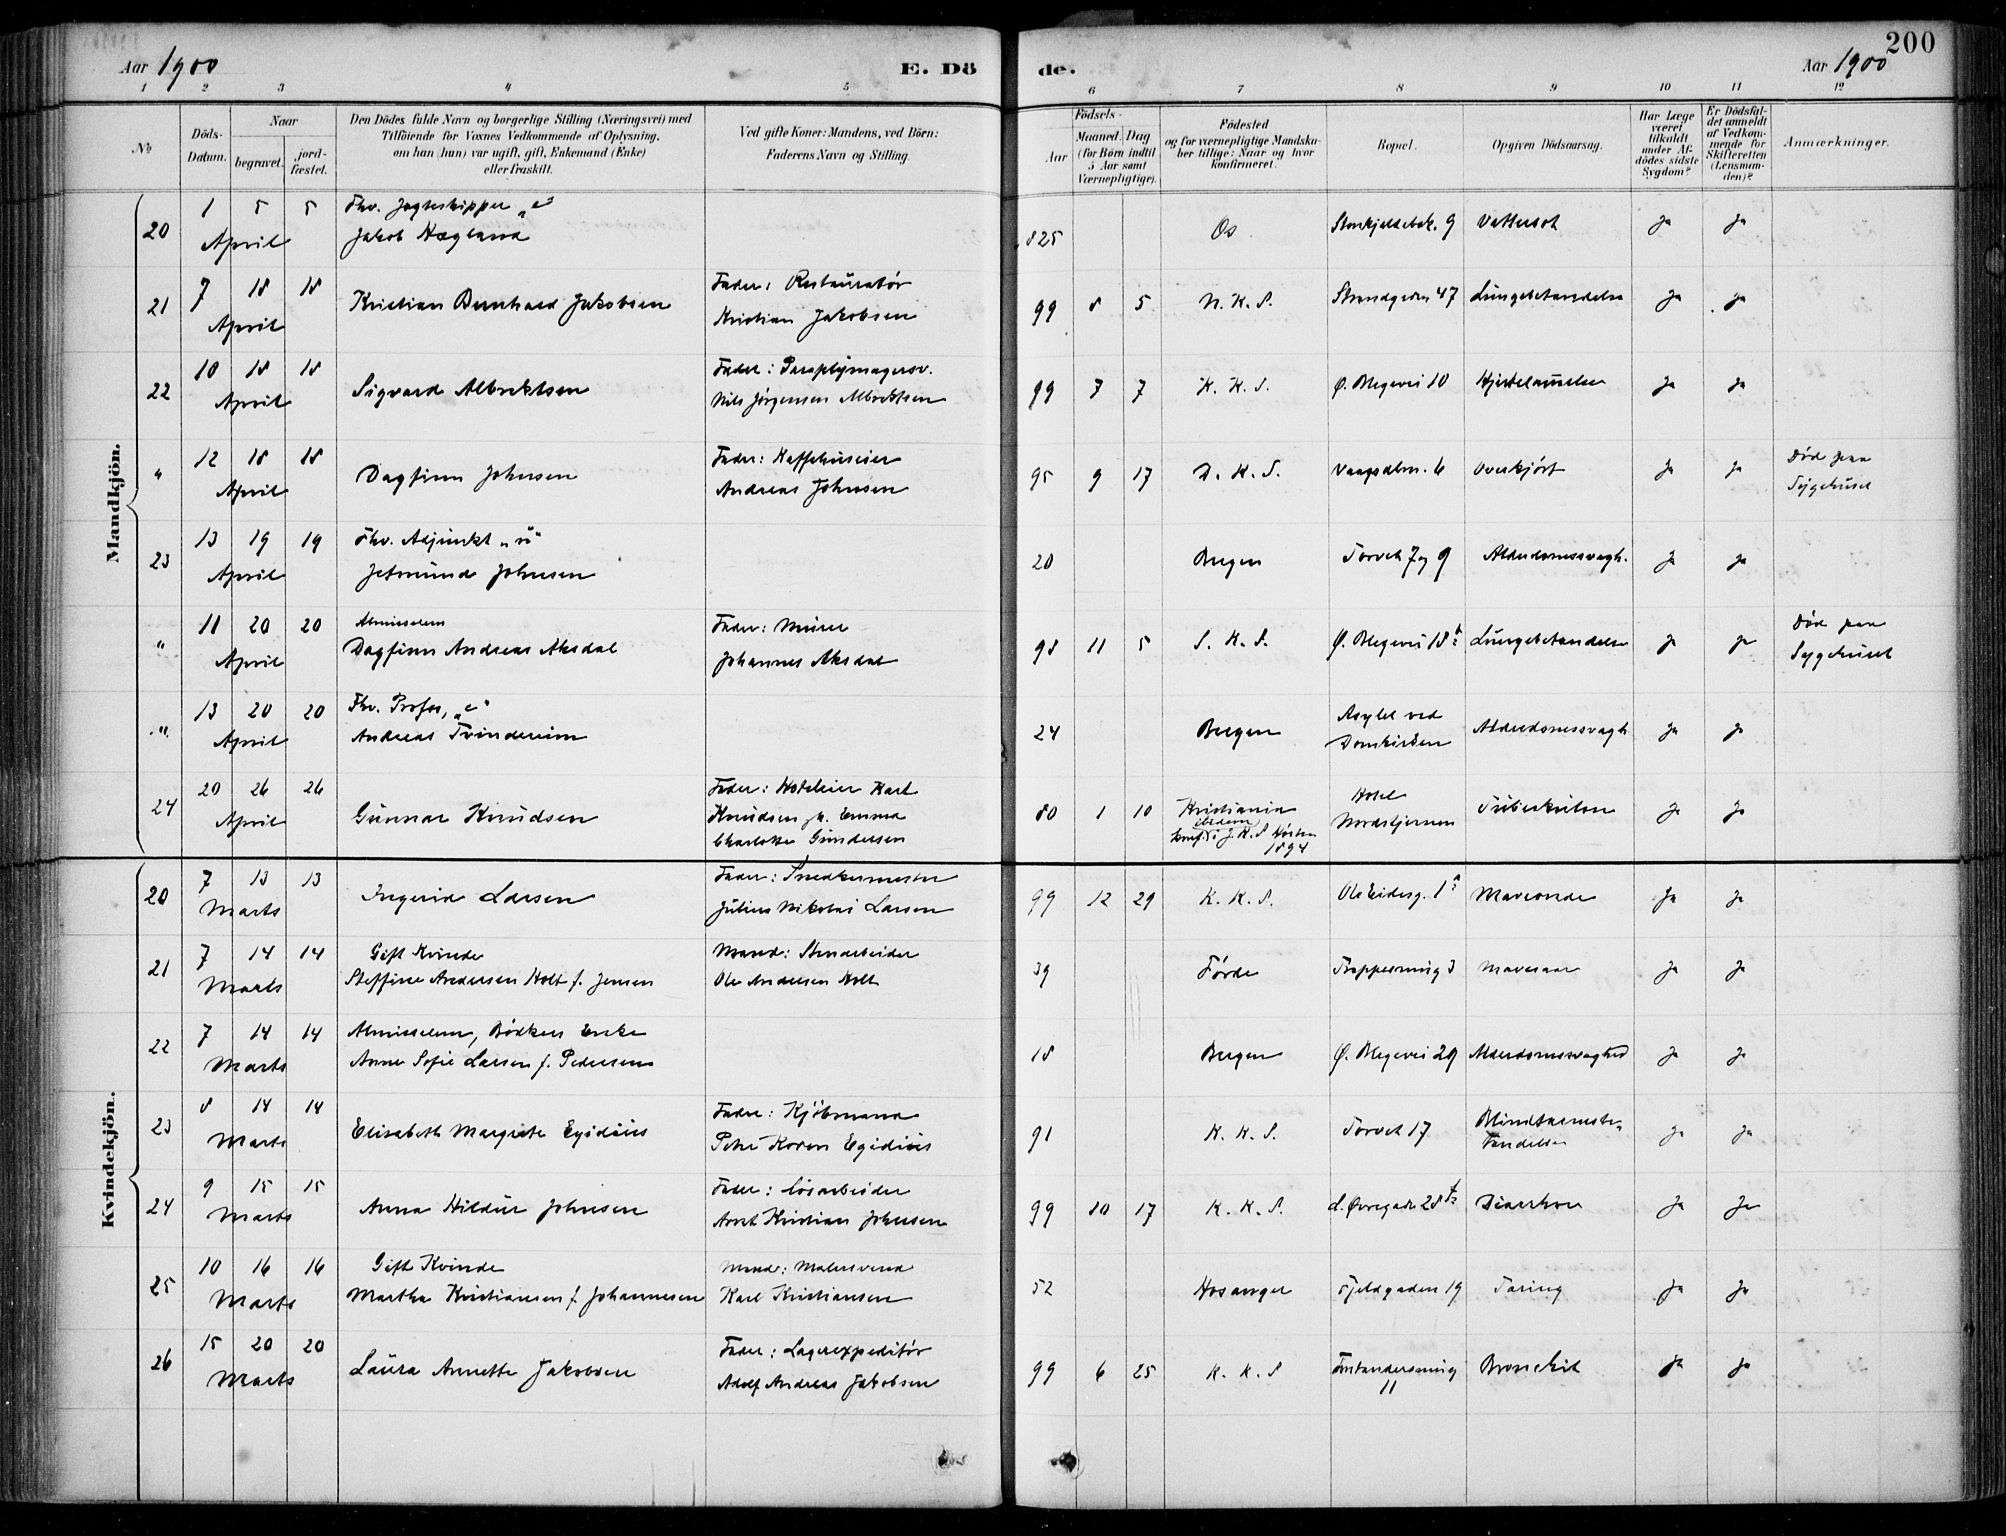 200
Aar 1900
E. Dö
de.
Aar 1900
1 2 3 4 5 6 7 8 9 10 11 12
No
Döds-Datum.
Naar
begravet.
jord-fæstet.
Den Dödes fulde Navn og borgerlige Stilling (Næringsvei) med
Tilföiende for Voxnes Vedkommende af Oplysning,
om han (hun) var ugift, gift, Enkemand (Enke)
eller fraskilt.
Ved gifte Koner: Mandens, ved Börn:
Faderens Navn og Stilling.
Födsels-
Aar
Maaned. Dag
(for Börn indtil
5 Aar samt
Værnepligtige).
Födested
og for værnepligtige Mandska-
ber tillige: Naar og hvor
konfirmeret.
Bopæl.
Opgiven Dödsaarsag.
Har Læge
været
tilkaldt
under Af-
dödes sidste
Sygdom?
Er Dödsfal-
det anmeldt
af Vedkom-
mende for
Skifteretten
(Lensman-
den)?
Anmærkninger.
Mandkjön.
20 1 5 5 April Fhv. Jagteskipper "e"
Jakob Hægland
825 Os 9 Vattersot Ja Ja
21 7 18 18 April Kristian Bernhard Jakobsen
Fader: Restauratør
Kristian Jakobsen
99 8 5 N. K. S. Strandgaden 47 Lungebetændelse Ja Ja
22 10 18 18 April Sigvard Albrektsen
Fader: Paraplymagersv.
Nils Jørgensen Albrektsen
99 7 7 K. K. S. Ø. Blegevei 10 Hjertelammelse Ja Ja
" 12 18 18 April Dagfinn Johnsen
Fader: Kaffehuseier
Andreas Johnsen
95 9 17 D. K. S. Vaagsalm. 6 Overkjørt Ja Ja Død paa
Sygehuset
23 13 19 19 April Fhv. Adjunkt "u"
Jetmund Johnsen
20 Bergen Torvet 7 og 9 Alderdomssvagh. Ja Ja
" 11 20 20 April Almisselem
Dagfinn Andreas Aksdal
Fader: Murer
Johannes Aksdal
98 11 5 S. K. S. Ø. Blegevei 18 b Lungebetændelse Ja Ja Død paa
Sygehuset
" 13 20 20 April Fhv. Profos, "e"
Andreas Tvindereim
24 Bergen Asylet ved
Domkirken Alderdomssvagh Ja Ja
24 20 26 26 April Gunnar Knudsen
Fader: Hoteleier Karl
Knudsen h. Emma
Charlotte Gundersen
80 1 10 Kristiania
konf. i J. K. S Høsten
1894
Hotel
Nordstjernen Tuberkulose Ja Ja
Kvindekjön.
20 7 13 13 Marts Ingerid Larsen
Fader: Snedkermester
Julius Nikolai Larsen
99 12 29 K. K. S. Ole Eidesg. 1 a Maveonde Ja Ja
21 7 14 14 Marts Gift Kvinde
Steffine Andersen Holt f. Jensen
Mand: Stenarbeider
Ole Andersen Holt
39 Førde Trappesmug 3 Mavesaar Ja Ja
22 7 14 14 Marts Almisselem, Bødkers Enke
Anne Sofie Larsen f. Pedersen
18 Bergen Ø. Blegevei 29 Alderdomssvaghed Ja Ja
23 8 14 14 Marts Elisabeth Margrete Egidius
Fader: Kjøbmand
Peter Koren Egidius
91 K. K. S. Torvet 17 Blindtarmsbe-
tændelse Ja Ja
24 9 15 15 Marts Anna Hildur Johnsen
Fader: Løsarbeider
Arnt Kristian Johnsen
99 10 17 K. K. S. L. Øvregade 28 b Diarrhoe Ja Ja
25 10 16 16 Marts Gift Kvinde
Martha Kristiansen f. Johannesen
Mand: Malersvend
Karl Kristiansen
52 Hosanger Fjeldgaden 19 Tæring Ja Ja
26 15 20 20 Marts Laura Annette Jakobsen
Fader: Lagerexpeditør
Adolf Andreas Jakobsen
99 6 25 K. K. S Forstandersmug
11 Bronchit Ja Ja